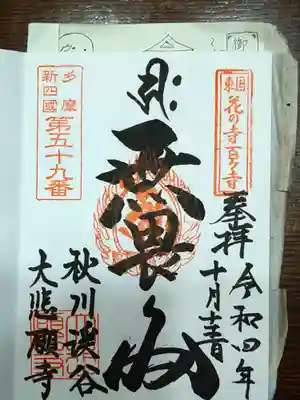 東国
花の寺百ケ寺
奉拝
令和四年
十月
無畏
多摩
新四國
第五十九番
秋川渓谷
大悲願寺
御